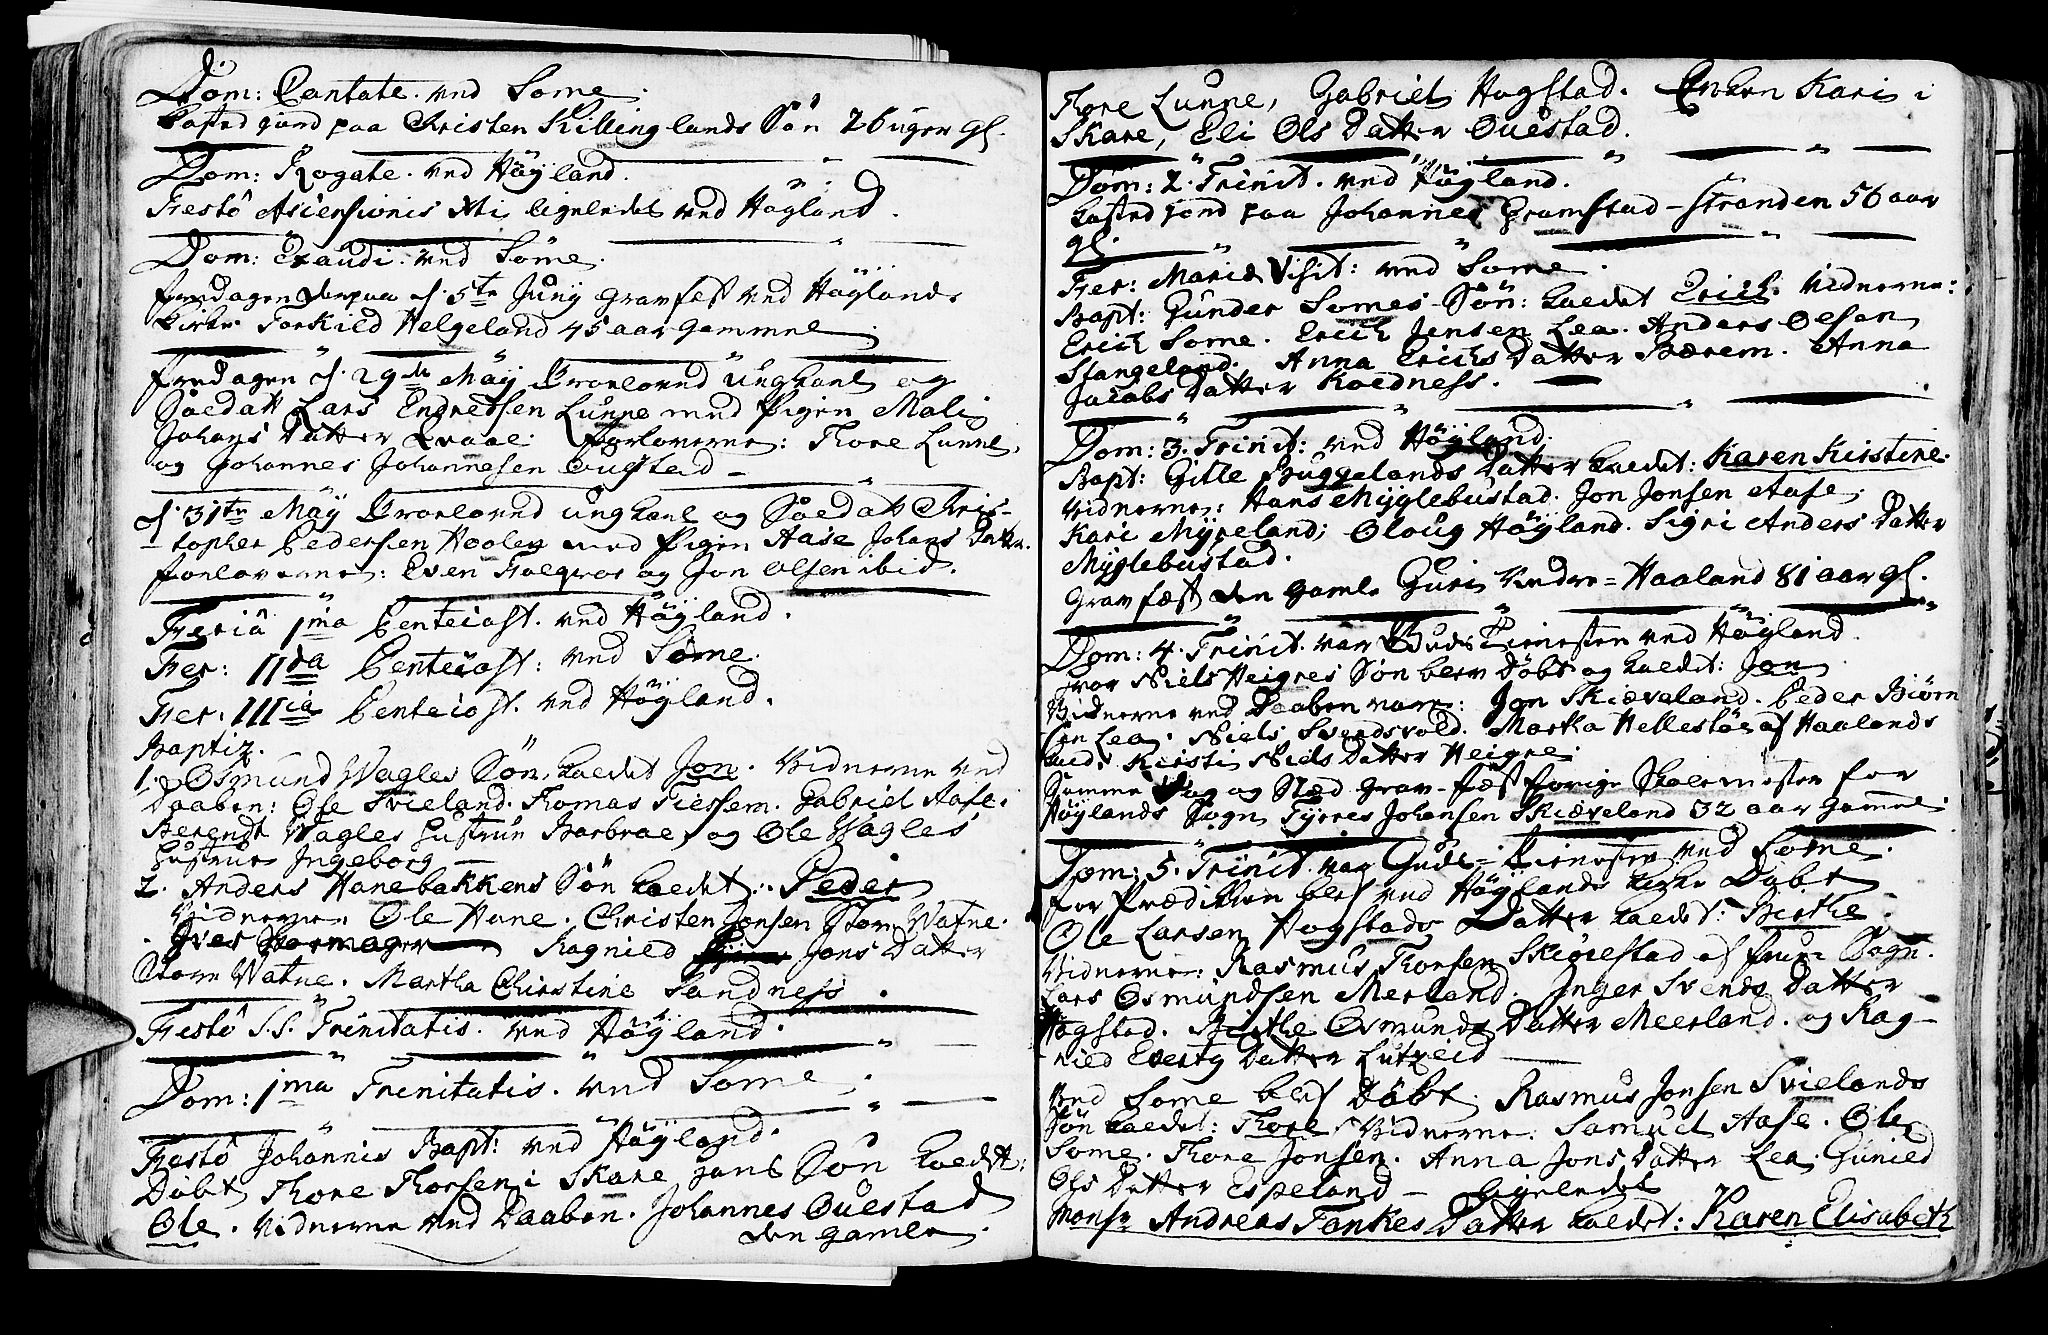 Dom: Cantate. ved Some.
Kasted Jord paa Christen Killinglands Søn 26 uger gl.
Dom: Rogate. ved Höÿland.
Festô Ascensionis Xti ligeledes ved Höÿland.
Dom: Exaudi. ved Some.
Fredagen derpaa d. 5te Junÿ gravfest ved Höÿlands
Kirke Torkild Helgeland 45 aar gammel
Fredagen d. 29de Maÿ Troloved ungkarl og
Soldatt Lars Endresen Lunne med Pigen Mali
Johans Datter Qvaal. Forloverne: Thore Lunne,
og Johannes Johannesen Ougstad
d. 31te Maÿ Trolovet ungkarl og Soldatt Chris-
topher Pedersen Hoolen med Pigen Aase Johans Datter.
Forloverne: Even Folqvor og Jon Olsen ibid.
Feriâ 1ma Pentecost. ved Höÿland.
Fer: IIda Pentecost: ved Some.
Fer: IIIia Pentecost. ved Höÿland.
Baptiz.
1. Osmund Wagles Søn, kaldet Jon. Vidnerne ved
Daaben: Ole Svieland. Thomas Tiessem. Gabriel Aase.
Berendt Wagles Hustrue Barbroe, og Ole Wagles
Hustrue Ingeborg
2. Anders Hanebakkens Søn kaldet: Peder
Vidnerne, Ole Hane. Christen Jonsen Store Watne.
Iver Ragnild Jons Datter
Store Watne. Martha Christine Sandness.
Festô S.S. Trinitatis. ved Höÿland.
Dom: 1ma Trinitatis. ved Some.
Festô Johannis Bapt: ved Höÿland.
Döbt Thore Thorsen i Skare hans Søn kaldet:
Ole. Vidnerne ved Daaben. Johannes Ouestad
den gamle.
Thore Lunne, Gabriel Hogstad. Enken Kari i
Skare, Eli Ols Datter Ouestad.
Dom: 2. Trinit. ved Höÿland.
Kasted Jord paa Johannes Gramstad-Stranden 56 aar
gl.
Fer: Mariæ Visit: ved Some.
Bapt: Gunder Somes Søn: kaldet Erich. Vidnerne:
Erich Some. Erich Jensen Lea. Anders Olsen
Stangeland. Anna Erichs Datter Bærem. Anna
Jacobs Datter Koldness.
Dom: 3. Trinit: ved Höÿland.
Bapt: Gitle Buggelands Datter kaldet: Karen Kirstine.
Vidnerne: Hans Mÿglebustad. Jon Jonsen Aase.
Kari Mÿreland; Oloug Höÿland. Sigri Anders Datter
Mÿglebustad.
Gravfæst den gamle Guri Nedre-Haaland 81 aar gl.
Dom: 4. Trinit. var Guds Tienesten ved Höÿland.
hvor Niels Heigres Søn blev Döbt og kaldet: Jon
Vidnerne ved Daaben vare: Jon Skiæveland. Peder Biørn
sen Lea. Niels Svendsvold. Martha Hellestöe af Haalands
Kirsti Niels Datter Heigre.
Samme Dag og Sted grav-fæst forrige Skolemester for
Höÿlands Sogn Tÿrres Johansen Skiæveland 32 aar gammel
Dom: 5. Trinit. var Guds-Tienesten ved Some.
for Prædiken blef ved Höÿlands Kirke Döbt
Ole Larsen Hogstads Datter kaldet: Berthe.
Vidnerne: Rasmus Thorsen Skiørestad af Sogn.
Lars Osmundsen Merland. Inger Svends Datter
Hogstad. Berthe Osmunds Datter Meerland. og Rag-
nild Datter Lutzeid
Ved Some blef Döbt Rasmus Jonsen Svielands
Søn kaldet: Thore. Vidnerne: Samuel Aase. Ole
Some. Thore Jonsen. Anna Jons Datter Lea. Gunild
Ols Datter Espeland – ligeledes
Monsr Andreas Tankes Datter kaldet: Karen Elisabeth